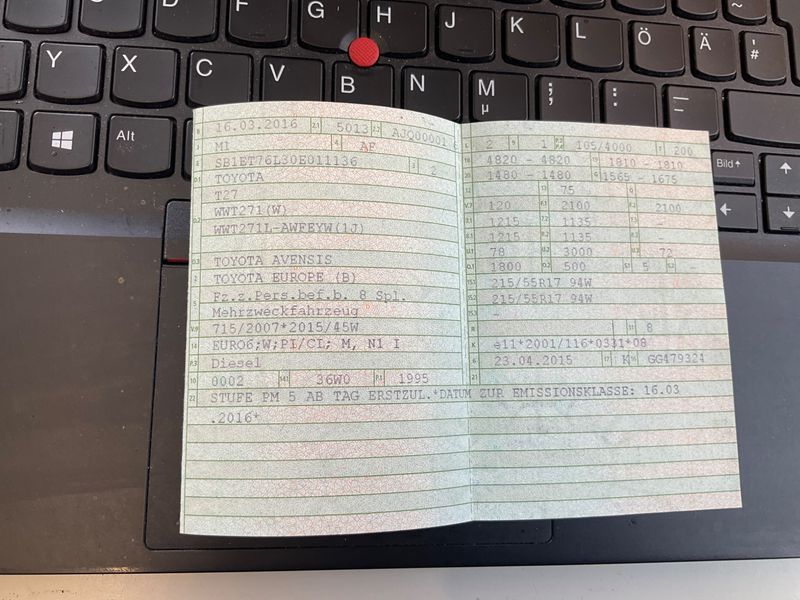 F G H J K L Ö Ä #
Y X C V B N M µ ; , : . _ -
Alt Bild
B 16.03.2016 2.1 5013 2.2 AJQ00001
J M1 4 AF
E SB1ET76L30E011136 3 2
D.1 TOYOTA
T27
D.2 WWT271(W)
WWT271L-AWFEYW(1J)
D.3 TOYOTA AVENSIS
2 TOYOTA EUROPE (B)
5 Fz.z.Pers.bef.b. 8 Spl.
Mehrzweckfahrzeug
V.9 715/2007*2015/45W
14 EURO6;W;PI/CI; M, N1 I
P.3 Diesel
10 0002 14.1 36W0 P.1 1995
22 STUFE PM 5 AB TAG ERSTZUL.*DATUM ZUR EMISSIONSKLASSE: 16.03
.2016*
L 2 9 1 105/4000 T 200
18 4820 - 4820 19 1810 - 1810
20 1480 - 1480 G 1565 - 1675
12 - 13 75 Q -
V.7 120 F.1 2100 F.2 2100
7.1 1215 7.2 1135 7.3 -
8.1 1215 8.2 1135 8.3 -
U.1 78 U.2 3000 U.3 72
O.1 1800 O.2 500 S.1 5 S.2 -
15.1 215/55R17 94W
15.2 215/55R17 94W
15.3 -
R 11 8
K e11*2001/116*0331*08
6 23.04.2015 17 K 16 GG479324
21